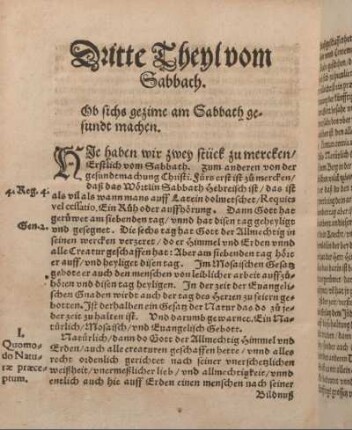 Dritte Theyl vom
Sabbath.
Ob sichs gezime am Sabbath ge-
sundt machen.
HIe haben wir zwey stück zu mercken/
Erstlich vom Sabbath. zum anderen von der
gesundtmachung Christi. Fürs erst ist zu mercken/
4. Reg. 4.
daß das Wörtlin Sabbath Hebreisch ist/ das ist
als vil als wann mans auff Latein dolmetschet/ Requies
vel cessatio, Ein Rüh oder auffhörung. Dann Gott hat
gerüwet am siebenden tag/ vnnd hat disen tag geheyligt
Gen. 2.
vnd gesegnet. Die sechs tag hat Gott der Allmechtig in
seinen wercken verzeret/ do er Himmel vnd Erden vnnd
alle Creatur geschaffen hat: Aber am siebenden tag hört
er auff/ vnd heyliget disen tag. Im Mosaischen Gesatz
gebote er auch den menschen von leiblicher arbeit auffzu
hören vnd disen tag heyligen. In der zeit der Euangeli-
schen Gnaden wirdt auch der tag des Herren zu feiern ge-
botten. Ist derhalben ein Gesatz der Natur das do zu je-
der zeit zu halten ist. Vnd darumb gewarnet. Ein Na-
türlich/ Mosaisch/ vnd Euangelisch Gebott.
I.
Quomo-
do Natu-
ræ præce-
ptum.
Natürlich/ dann do Gott der Allmechtig Himmel vnd
Erden/ auch alle creaturen geschaffen hette/ vnd alles
recht ordenlich gerichtet nach seiner vnerschetzlichen
weißheit/ vnermeßlicher lieb/ vnd allmechtigkeit/ vnnd
entlich auch hie auff Erden einen menschen nach seiner
Bildnuß